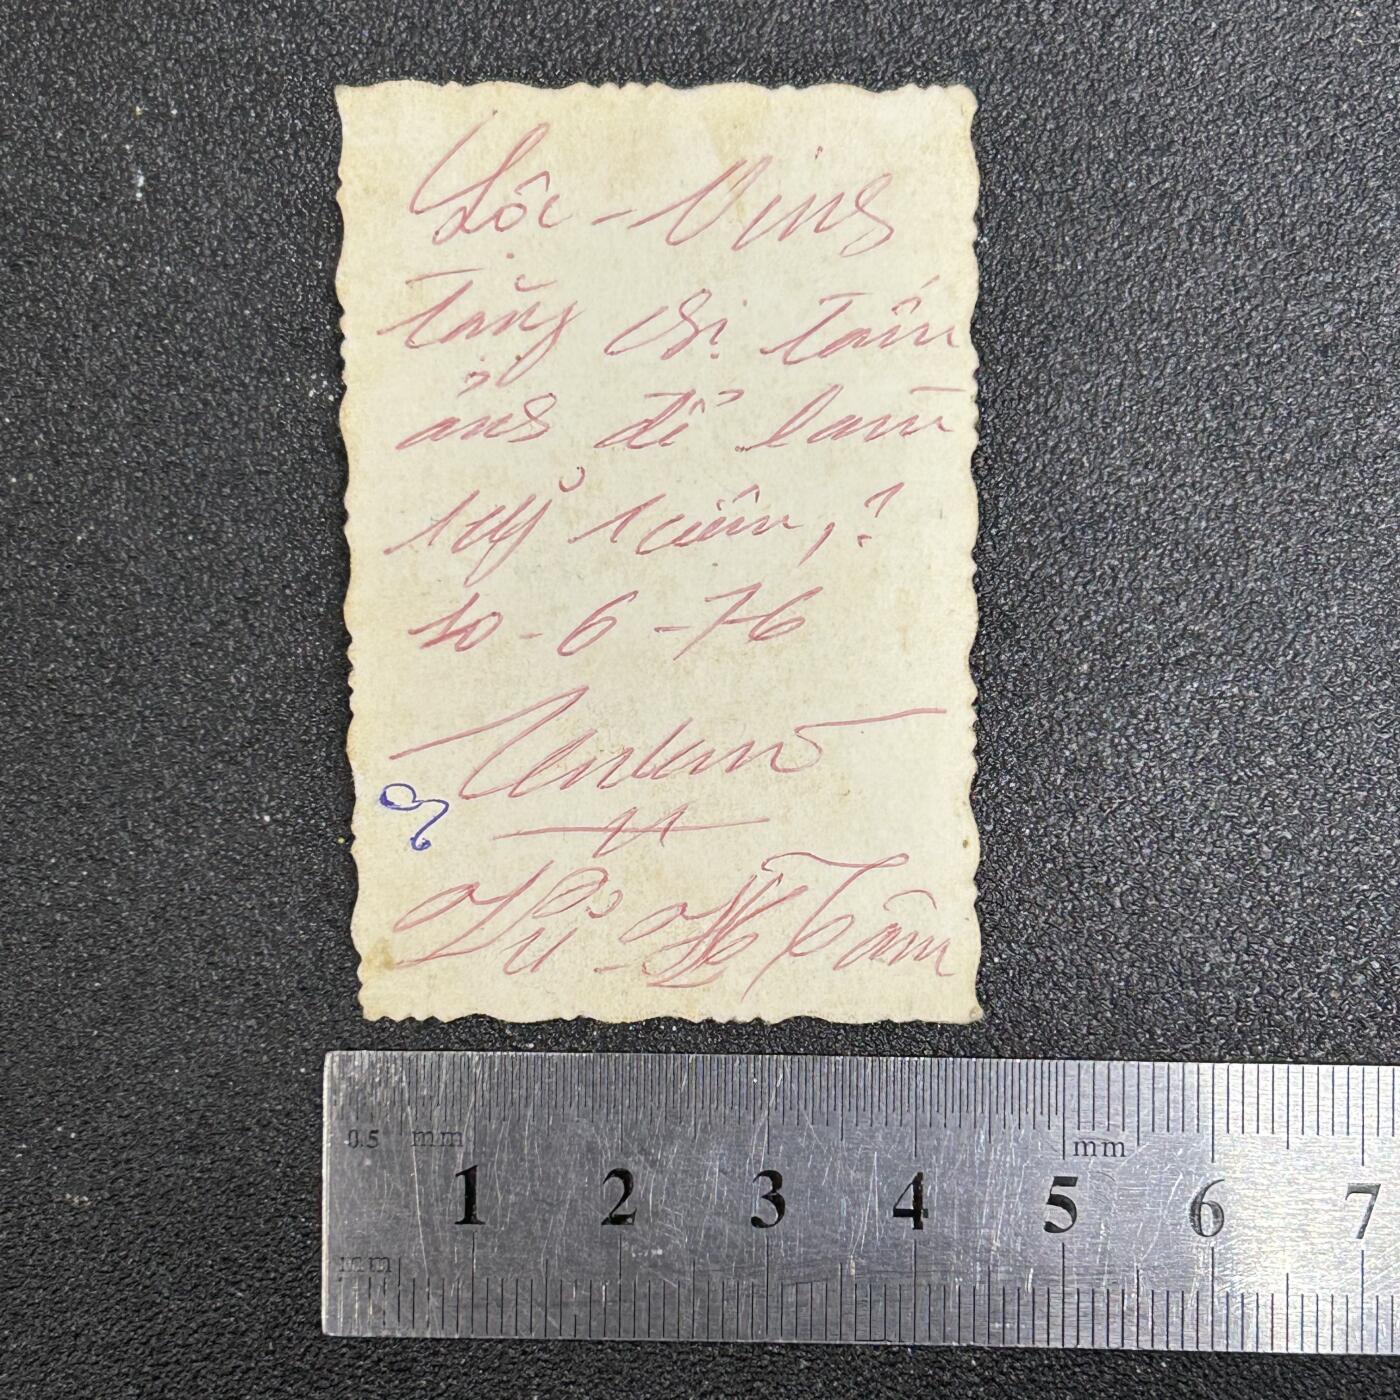 Lộc - Ving
Tặng chị Tám
ảnh để làm
kỷ niệm, !
10-6-76
Tâm
0.5 mm
mm
1 2 3 4 5 6 7
mm